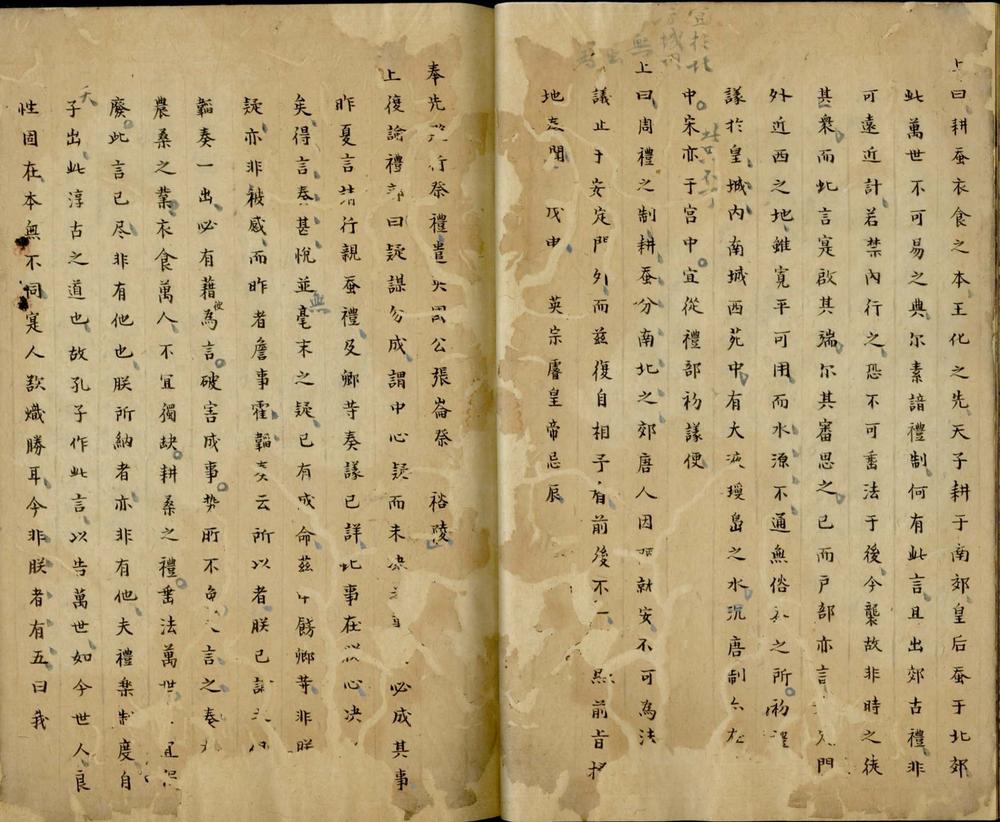 上曰耕蚕衣食之本王化之先天子耕于南郊皇后蚕于北郊
此萬世不可易之典尔素諳禮制何有此言且出郊古禮非
可遠近計若禁內行之恐不可垂法于後今襲故非時之徒
其衆而此言寔啟其端尔其審思之已而戶部亦言門
外近西之地雖寬平可用而水源不通無俗之所初
議於皇城内南城西苑中有大液瓊島之水沉唐制在
中宋亦于宮中宜從禮部初議便
上曰周禮之制耕蚕分南北之郊唐人因就安不可為法
議止于安定門外而兹復自相予盾前後不一前旨
地聞 戊申 英宗睿皇帝忌辰
奉先行祭禮遣公張崙祭 裕陵
上復諭禮部曰疑謀勿成謂中心疑而未必成其事
昨夏言請行親蚕禮及卿䓁奏議已詳此事在心决
矣得言奏甚悅並無毫末之疑已有成命兹卿䓁非朕
疑亦非被感而昨者詹事霍韜奏云所以者朕已
韜奏一出必有藉彼為言破害成事势所不免言之奏
農桑之業衣食萬人不宜獨缺耕桑之禮垂法萬世宜
廢此言已尽非有他也朕所納者亦非有他夫禮樂制度自
天子出此淳古之道也故孔子作此言以告萬世如今世人良
性固在本無不同寔人欲熾勝耳今非朕者有五曰我
宜於北
城内
無